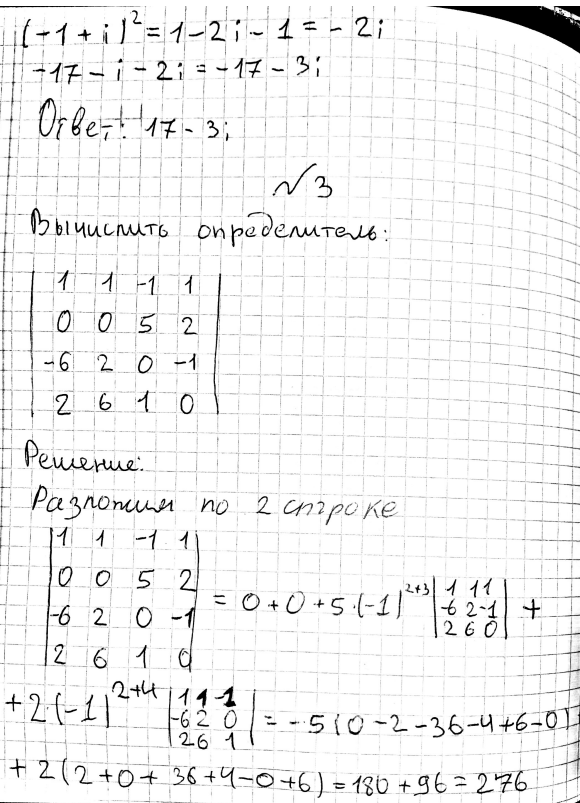 (-1+i)²=1-2i-1=-2i
-17-i-2i=-17-3i
Ответ: 17-3i
№3
Вычислить определитель:
1 1 -1 1
0 0 5 2
-6 2 0 -1
2 6 1 0
Решение:
Разложим по 2 строке
|1 1 -1 1|
|0 0 5 2|
|-6 2 0 -1|
|2 6 1 0|
= 0+0+5·(-1)²⁺³ |1 1 1; -6 2 -1; 2 6 0| +
+2(-1)²⁺⁴ |1 1 -1; -6 2 0; 2 6 1| = -5(0-2-36-4+6-0)
+2(2+0+36+4-0+6)=180+96=276